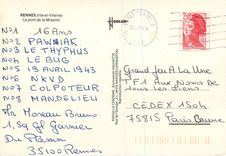 RENNES (Ille-et-Vilaine)
Le pont de la Mission
No1 16 Ans
No2 PAWNIAK
No3 LE THYPHUS
No4 LE BUG
No5 15 AVRIL 1943
No6 NKVD
No7 COLPOTEUR
No8 MANDELIEU
Mr Moreau Bruno
1, Sq gl Garnier
Du Plessis
35100 Rennes
Grand Jeu A La Une
TF1 Aux Noms De
tous les Siens
CEDEX 1504
75815 Paris Brune